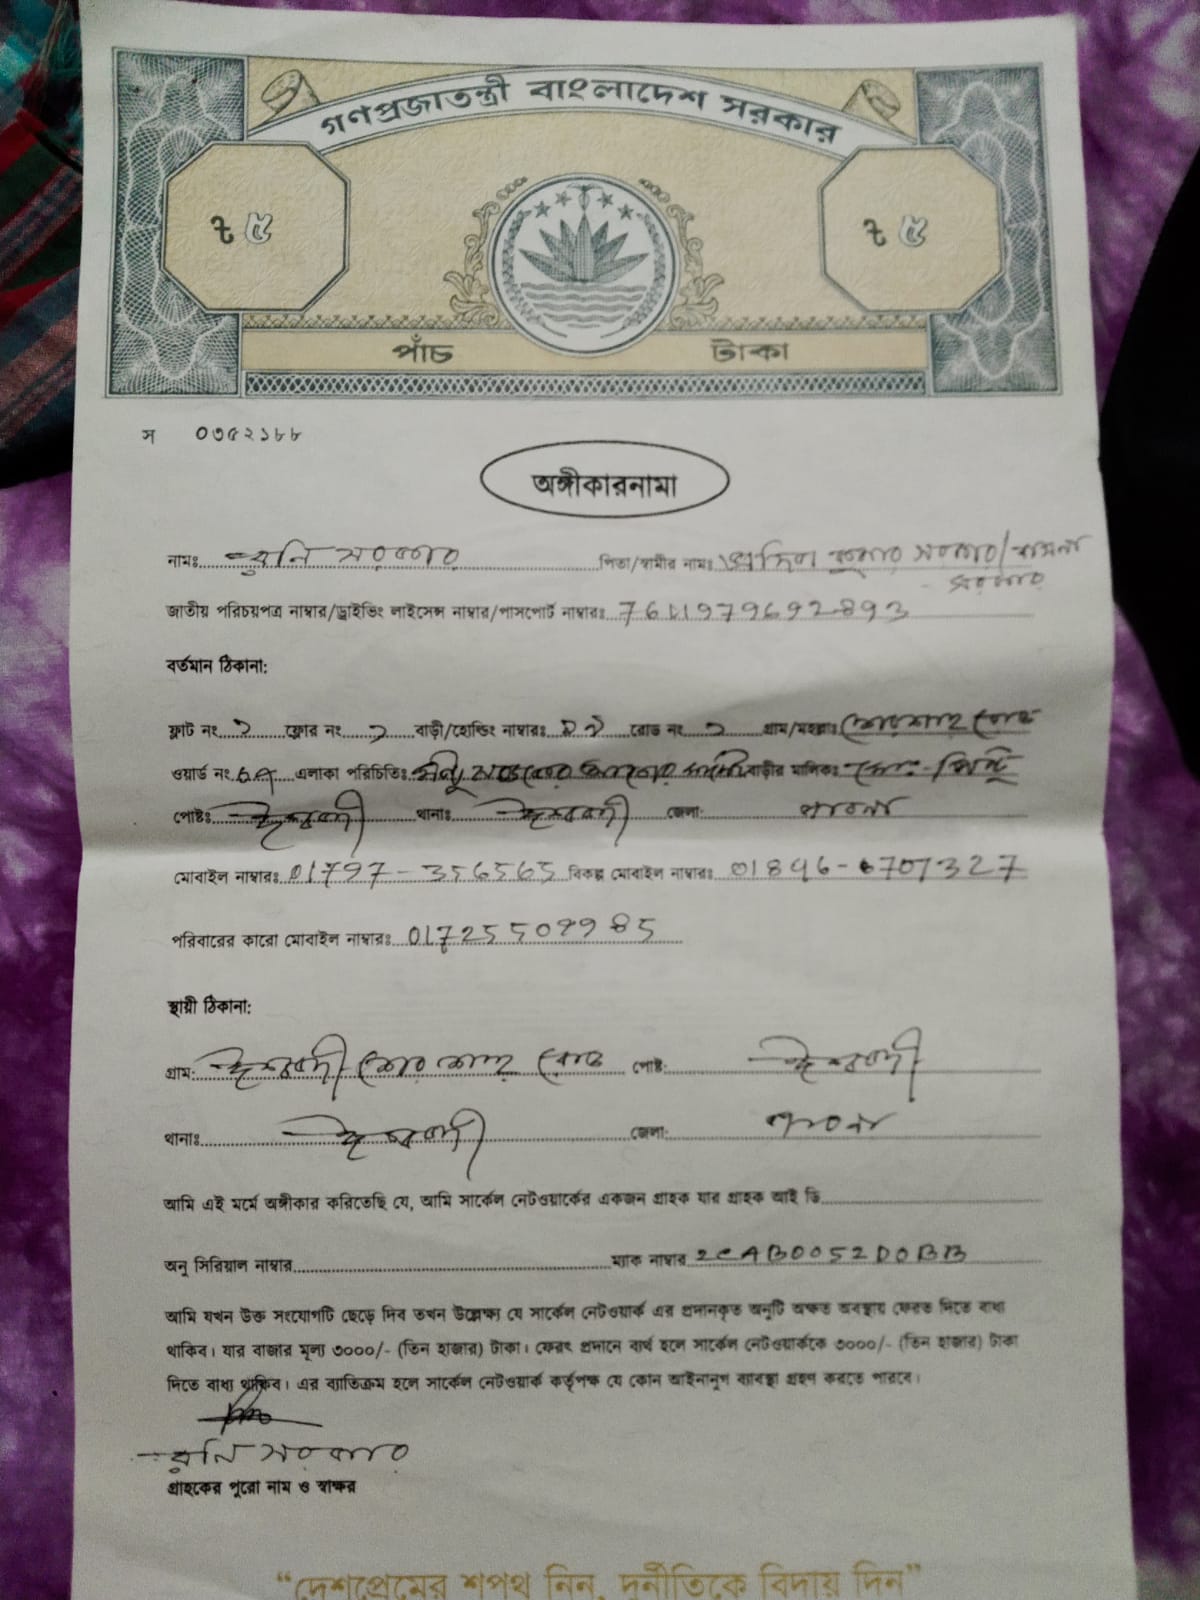 গণপ্রজাতন্ত্রী বাংলাদেশ সরকার
৳ ৫ ৳ ৫
পাঁচ টাকা
স ০৩৫২১৮৮
অঙ্গীকারনামা
নামঃ সরকার পিতা/স্বামীর নামঃ কুমার সরকার/
সরকার
জাতীয় পরিচয়পত্র নাম্বার/ড্রাইভিং লাইসেন্স নাম্বার/পাসপোর্ট নাম্বারঃ
বর্তমান ঠিকানা:
ফ্লাট নং ফ্লোর নং বাড়ী/হোল্ডিং নাম্বারঃ রোড নং গ্রাম/মহল্লাঃ শেরশাহ রোড
ওয়ার্ড নং এলাকা পরিচিতিঃ বাড়ীর মালিকঃ মোঃ
পোষ্টঃ ঈশ্বরদী থানাঃ ঈশ্বরদী জেলা: পাবনা
মোবাইল নাম্বারঃ 01797-356565 বিকল্প মোবাইল নাম্বারঃ
পরিবারের কারো মোবাইল নাম্বারঃ
স্থায়ী ঠিকানা:
গ্রাম: ঈশ্বরদী শেরশাহ রোড পোষ্ট: ঈশ্বরদী
থানাঃ ঈশ্বরদী জেলা: পাবনা
আমি এই মর্মে অঙ্গীকার করিতেছি যে, আমি সার্কেল নেটওয়ার্কের একজন গ্রাহক যার গ্রাহক আই ডি
অনু সিরিয়াল নাম্বার ম্যাক নাম্বার 2CAB0052D0BB
আমি যখন উক্ত সংযোগটি ছেড়ে দিব তখন উল্লেক্ষ্য যে সার্কেল নেটওয়ার্ক এর প্রদানকৃত অনুটি অক্ষত অবস্থায় ফেরত দিতে বাধ্য
থাকিব। যার বাজার মূল্য ৩০০০/- (তিন হাজার) টাকা। ফেরৎ প্রদানে ব্যর্থ হলে সার্কেল নেটওয়ার্ককে ৩০০০/- (তিন হাজার) টাকা
দিতে বাধ্য থাকিব। এর ব্যতিক্রম হলে সার্কেল নেটওয়ার্ক কর্তৃপক্ষ যে কোন আইনানুগ ব্যাবস্থা গ্রহণ করতে পারবে।
সরকার
গ্রাহকের পুরো নাম ও স্বাক্ষর
“দেশপ্রেমের শপথ নিন, দুর্নীতিকে বিদায় দিন”